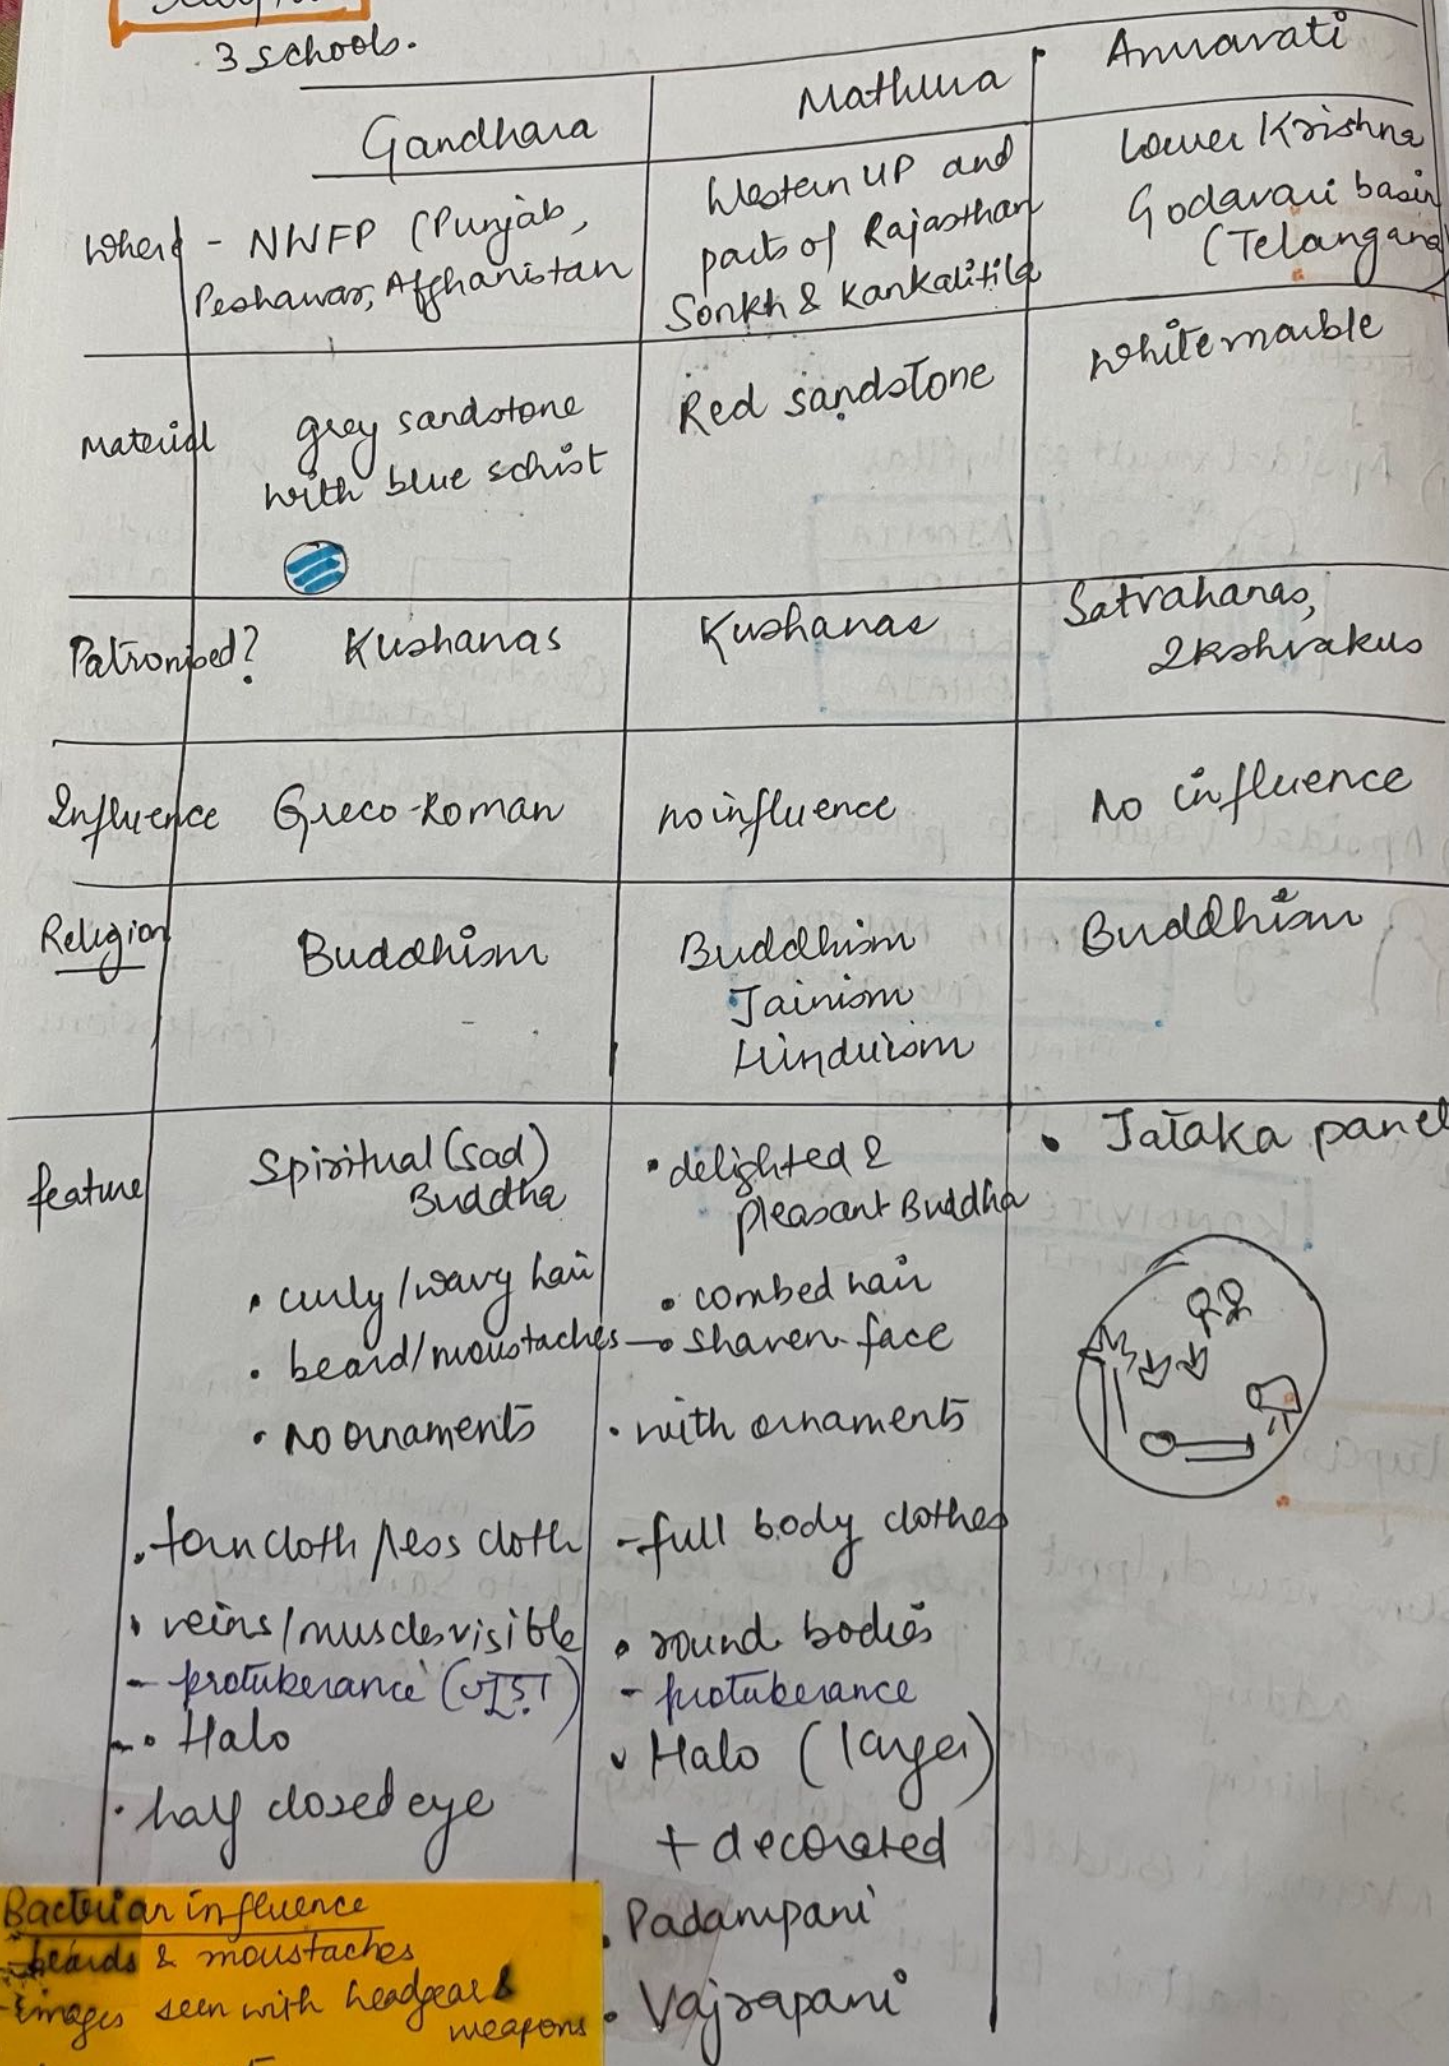 3 schools.
Gandhara
Mathura
Amravati
Where - NWFP (Punjab,
Peshawar, Afghanistan
Western UP and
parts of Rajasthan
Sonkh & Kankalitila
Lower Krishna
Godavari basin
(Telangana)
Material
grey sandstone
with blue schist
Red sandstone
White marble
Patronised?
Kushanas
Kushanas
Satvahanas,
Ikshvakus
Influence
Greco-Roman
no influence
No influence
Religion
Buddhism
Buddhism
Jainism
Hinduism
Buddhism
feature
Spiritual (sad)
Buddha
• curly/wavy hair
• beard/moustaches
• No ornaments
• torn cloth/less cloth
• veins/muscles visible
- protuberance
• Halo
• half closed eye
• delighted &
pleasant Buddha
• combed hair
→ shaven face
• with ornaments
- full body clothes
• round bodies
- protuberance
Halo (larger)
+ decorated
• Padampani
• Vajrapani
• Jataka panel
Bacterian influence
- beards & moustaches
- images seen with headgear &
weapons